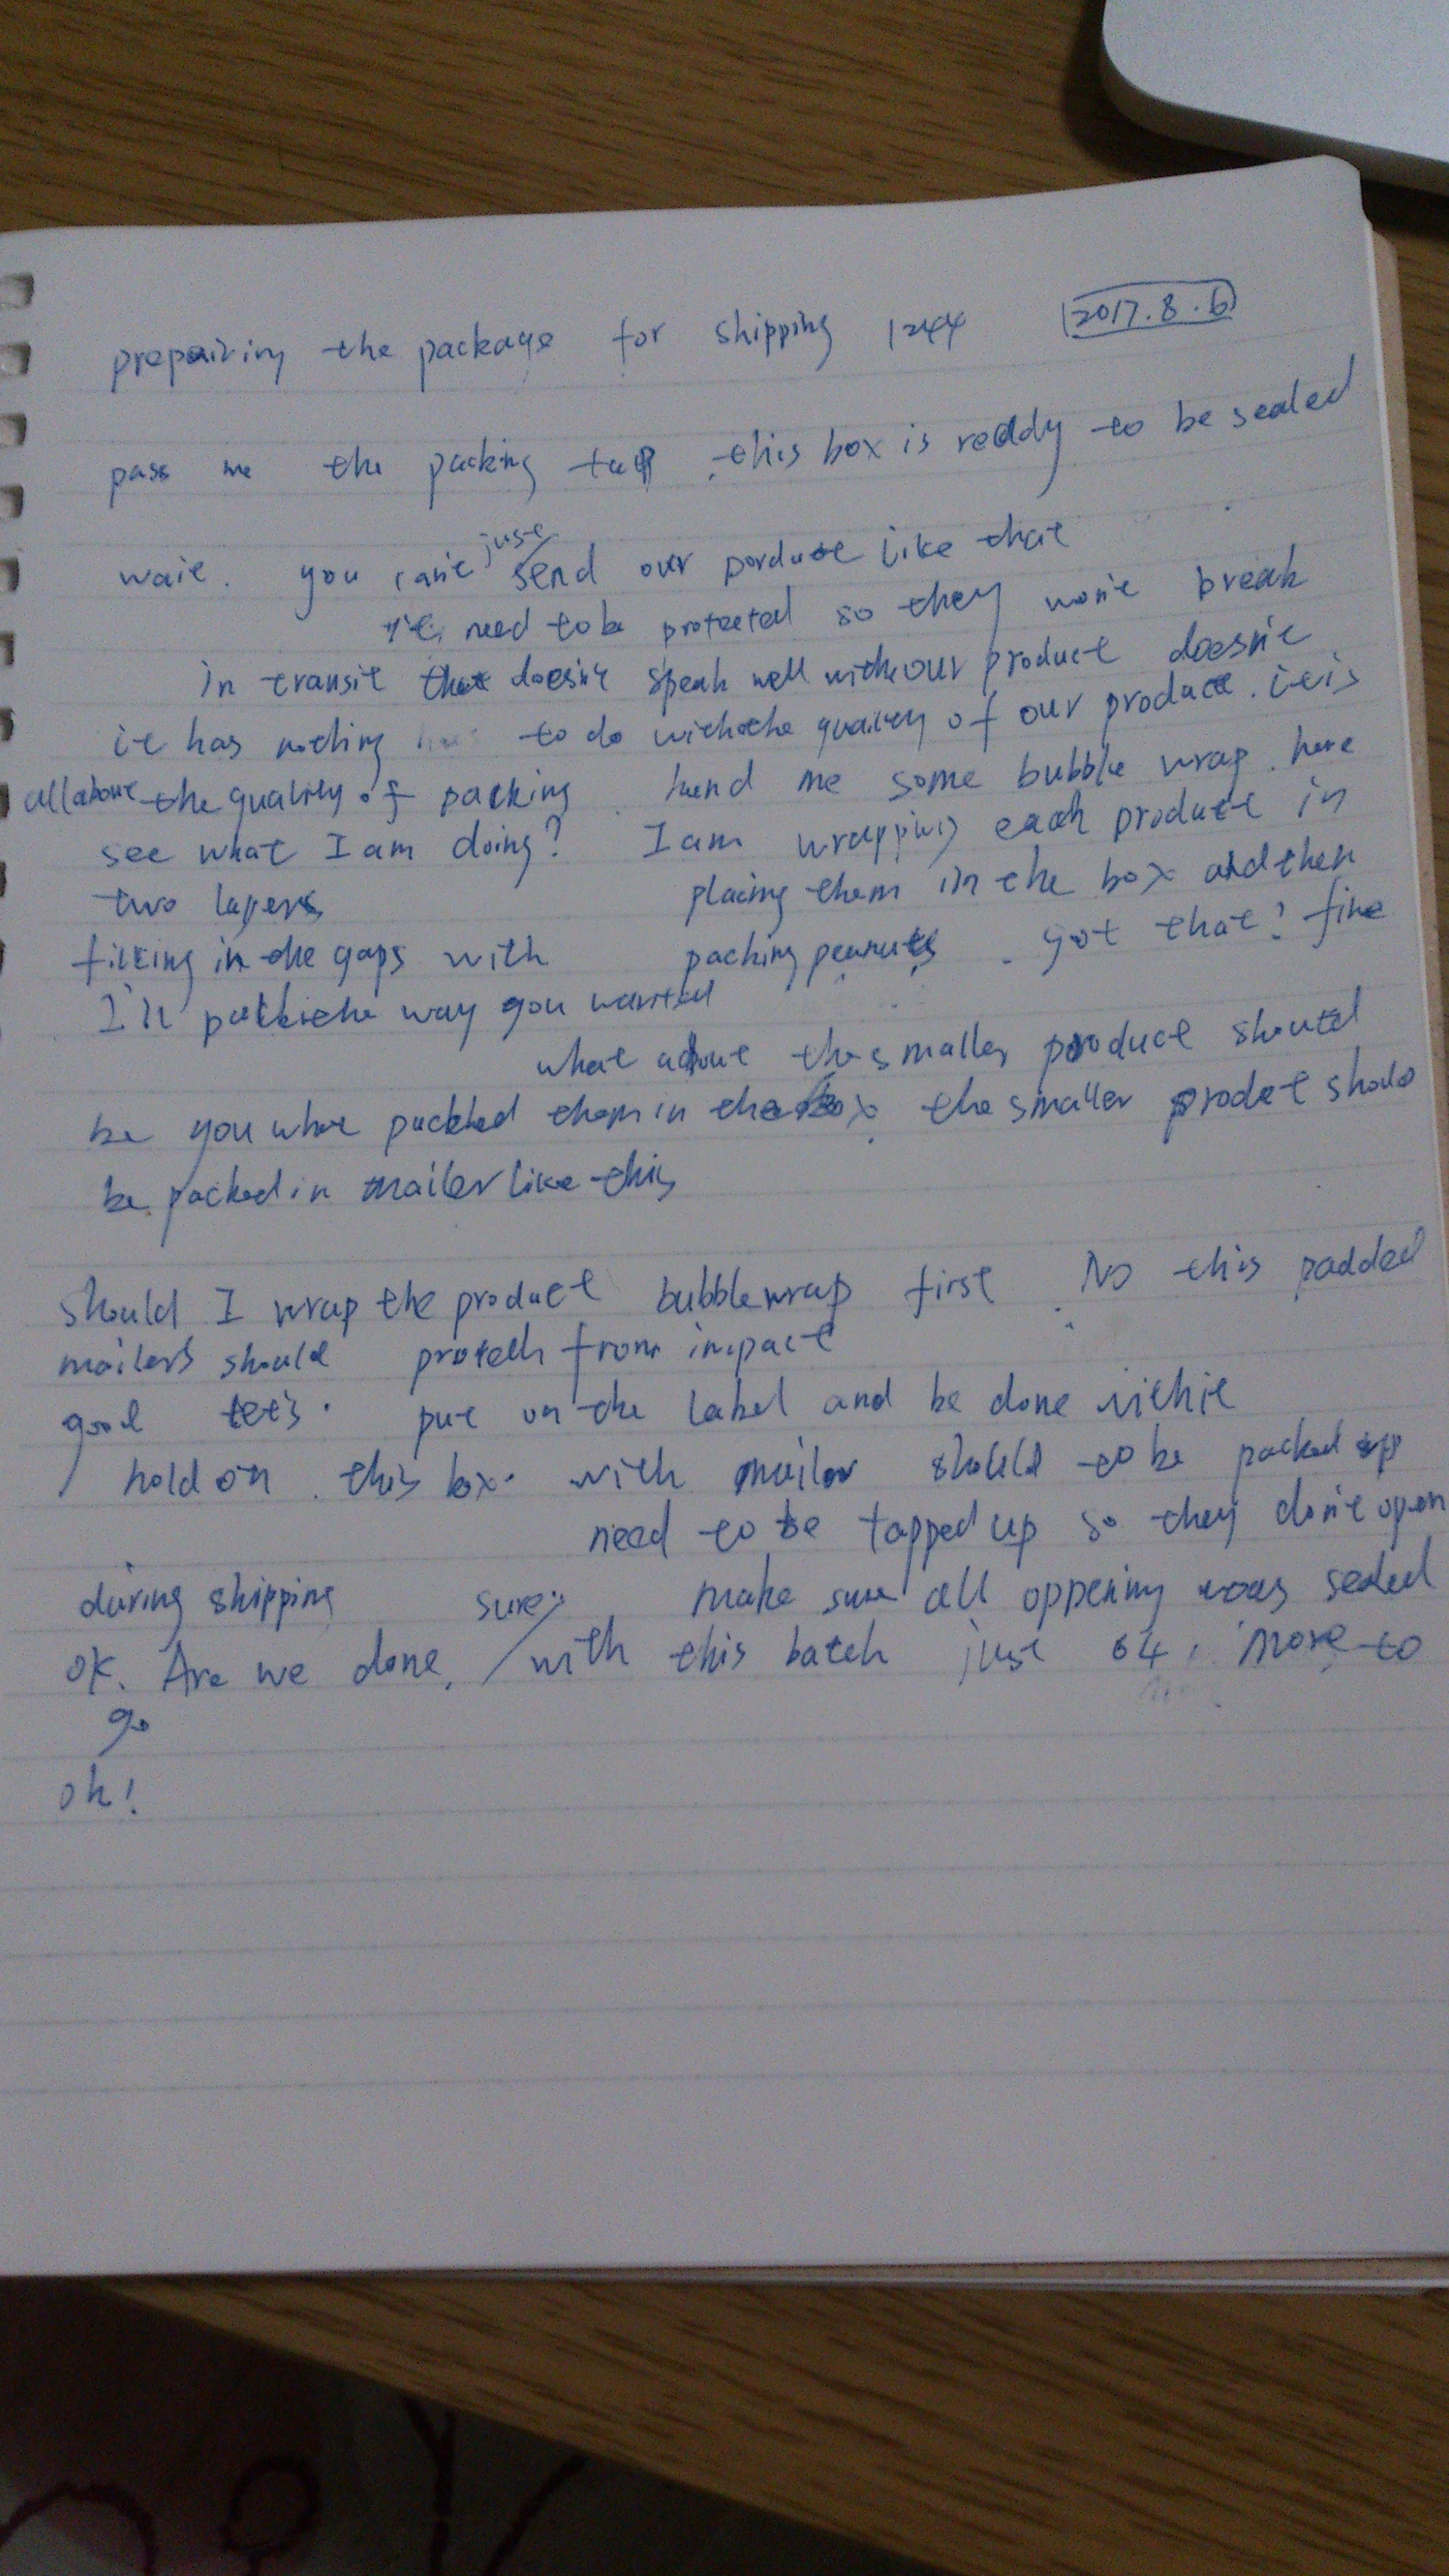 prepairing the package for shipping 1244 2017.8.6
pass me the packing tap, this box is ready to be sealed
wait. you can't just send our porduct like that
it need to be protected so they won't break
in transit that doesn't speak well with our product doesn't
it has nothing to do with the quality of our product. it is
all about the quality of packing. hand me some bubble wrap. here
see what I am doing? I am wrapping each product in
two layers placing them in the box and then
filling in the gaps with packing peanuts. got that? fine
I'll pack the way you wanted
what about the smaller product should
be you what packed them in the box. the smaller prodct should
be packed in mailer like this
should I wrap the product bubble wrap first. No this padded
mailers should protech from impact
good let's. put on the label and be done with it
hold on. this box. with mailer should to be packed up
need to be tapped up so they don't open
during shipping sure. make sure all oppening was sealed
ok. Are we done, with this batch just 64, more to
go
oh!